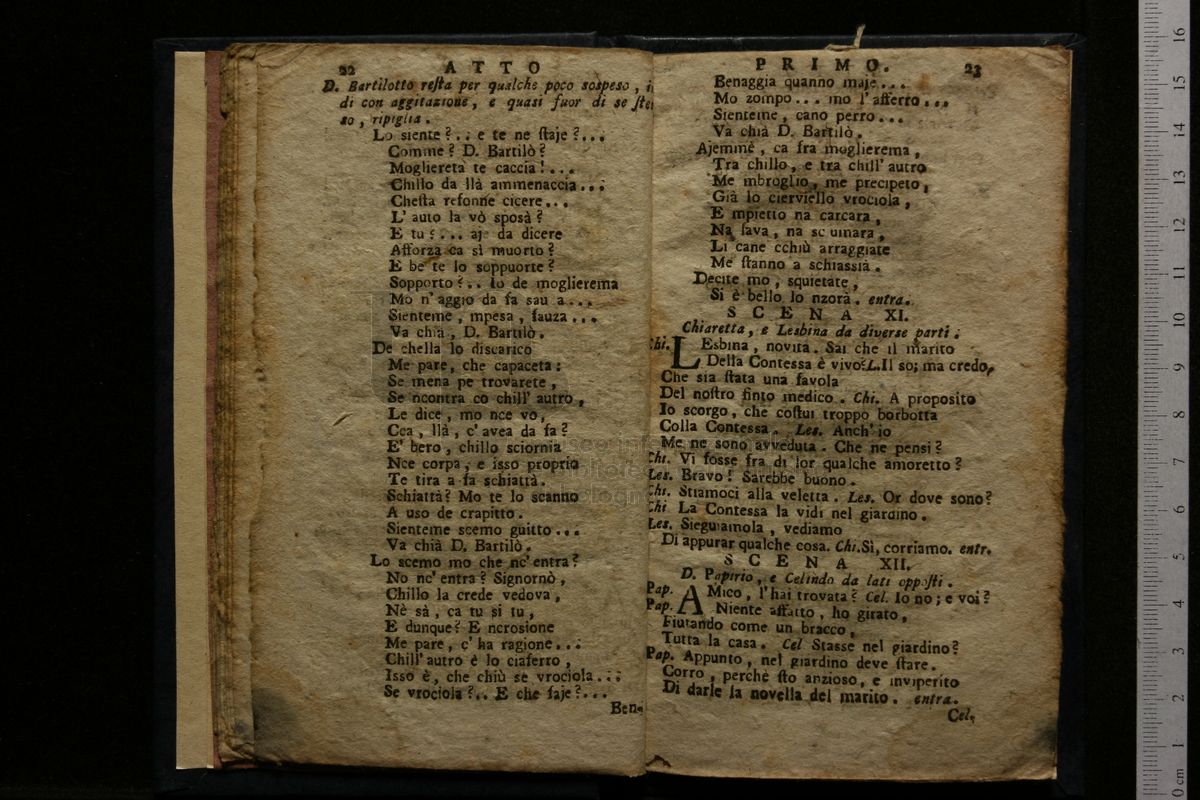 22 ATTO
D. Bartilotto resta per qualche poco sospeso,
di con aggitazione, e quasi fuor di se
so, ripiglia.
Lo siente?.. e te ne staje?...
Comme? D. Bartilò?
Mogliereta te caccia!...
Chillo da llà ammenaccia...
Chesta resonne cicere...
L' auto la vò sposà?
E tu?... aje da dicere
Afforza ca sì muorto?
E be te lo soppuorte?
Sopporto?.. Io de moglierema
Mo n' aggio da fa sau a...
Sienteme, mpesa, fauza...
Va chià, D. Bartilò.
De chella lo discarico
Me pare, che capaceta:
Se mena pe trovarete,
Se ncontra co chill' autro,
Le dice, mo nce vo,
Cca, llà, c' avea da fa?
E' bero, chillo sciornia
Nce corpa, e isso proprio
Te tira a fa schiattà.
Schiattà? Mo te lo scanno
A uso de crapitto.
Sienteme scemo guitto...
Va chià D. Bartilò.
Lo scemo mo che nc' entra?
No nc' entra? Signornò,
Chillo la crede vedova,
Nè sà, ca tu si tu,
E dunque? E ncrosione
Me pare, c' ha ragione...
Chill' autro è lo ciaferro,
Isso è, che chiù se vrociola...
Se vrociola?.. E che faje?...
Ben-
PRIMO. 23
Benaggia quanno maje...
Mo zompo... mo l' afferro...
Sienteme, cano perro...
Va chià D. Bartilò.
Ajemmè, ca fra moglierema,
Tra chillo, e tra chill' autro
Me mbroglio, me precipeto,
Già lo cierviello vrociola,
E mpietto na carcara,
Na lava, na sciumara,
Li cane cchiù arraggiate
Me stanno a schiassià.
Decite mo, squietate,
Si è bello lo nzorà. entra.
SCENA XI.
Chiaretta, e Lesbina da diverse parti.
Chi. LEsbina, novità. Sai che il marito
Della Contessa è vivo? L. Il so; ma credo,
Che sia stata una favola
Del nostro finto medico. Chi. A proposito
Io scorgo, che costui troppo borbotta
Colla Contessa. Les. Anch' io
Me ne sono avveduta. Che ne pensi?
Chi. Vi fosse fra di lor qualche amoretto?
Les. Bravo! Sarebbe buono.
Chi. Stiamoci alla veletta. Les. Or dove sono?
Chi La Contessa la vidi nel giardino.
Les. Sieguiamola, vediamo
Di appurar qualche cosa. Chi. Sì, corriamo. entr.
SCENA XII.
D. Papirio, e Celindo da lati opposti.
Pap. AMico, l' hai trovata? Cel. Io no; e voi?
Pap. Niente affatto, ho girato,
Fiutando come un bracco,
Tutta la casa. Cel Stasse nel giardino?
Pap. Appunto, nel giardino deve stare.
Corro, perchè sto anzioso, e inviperito
Di darle la novella del marito. entra.
Cel.